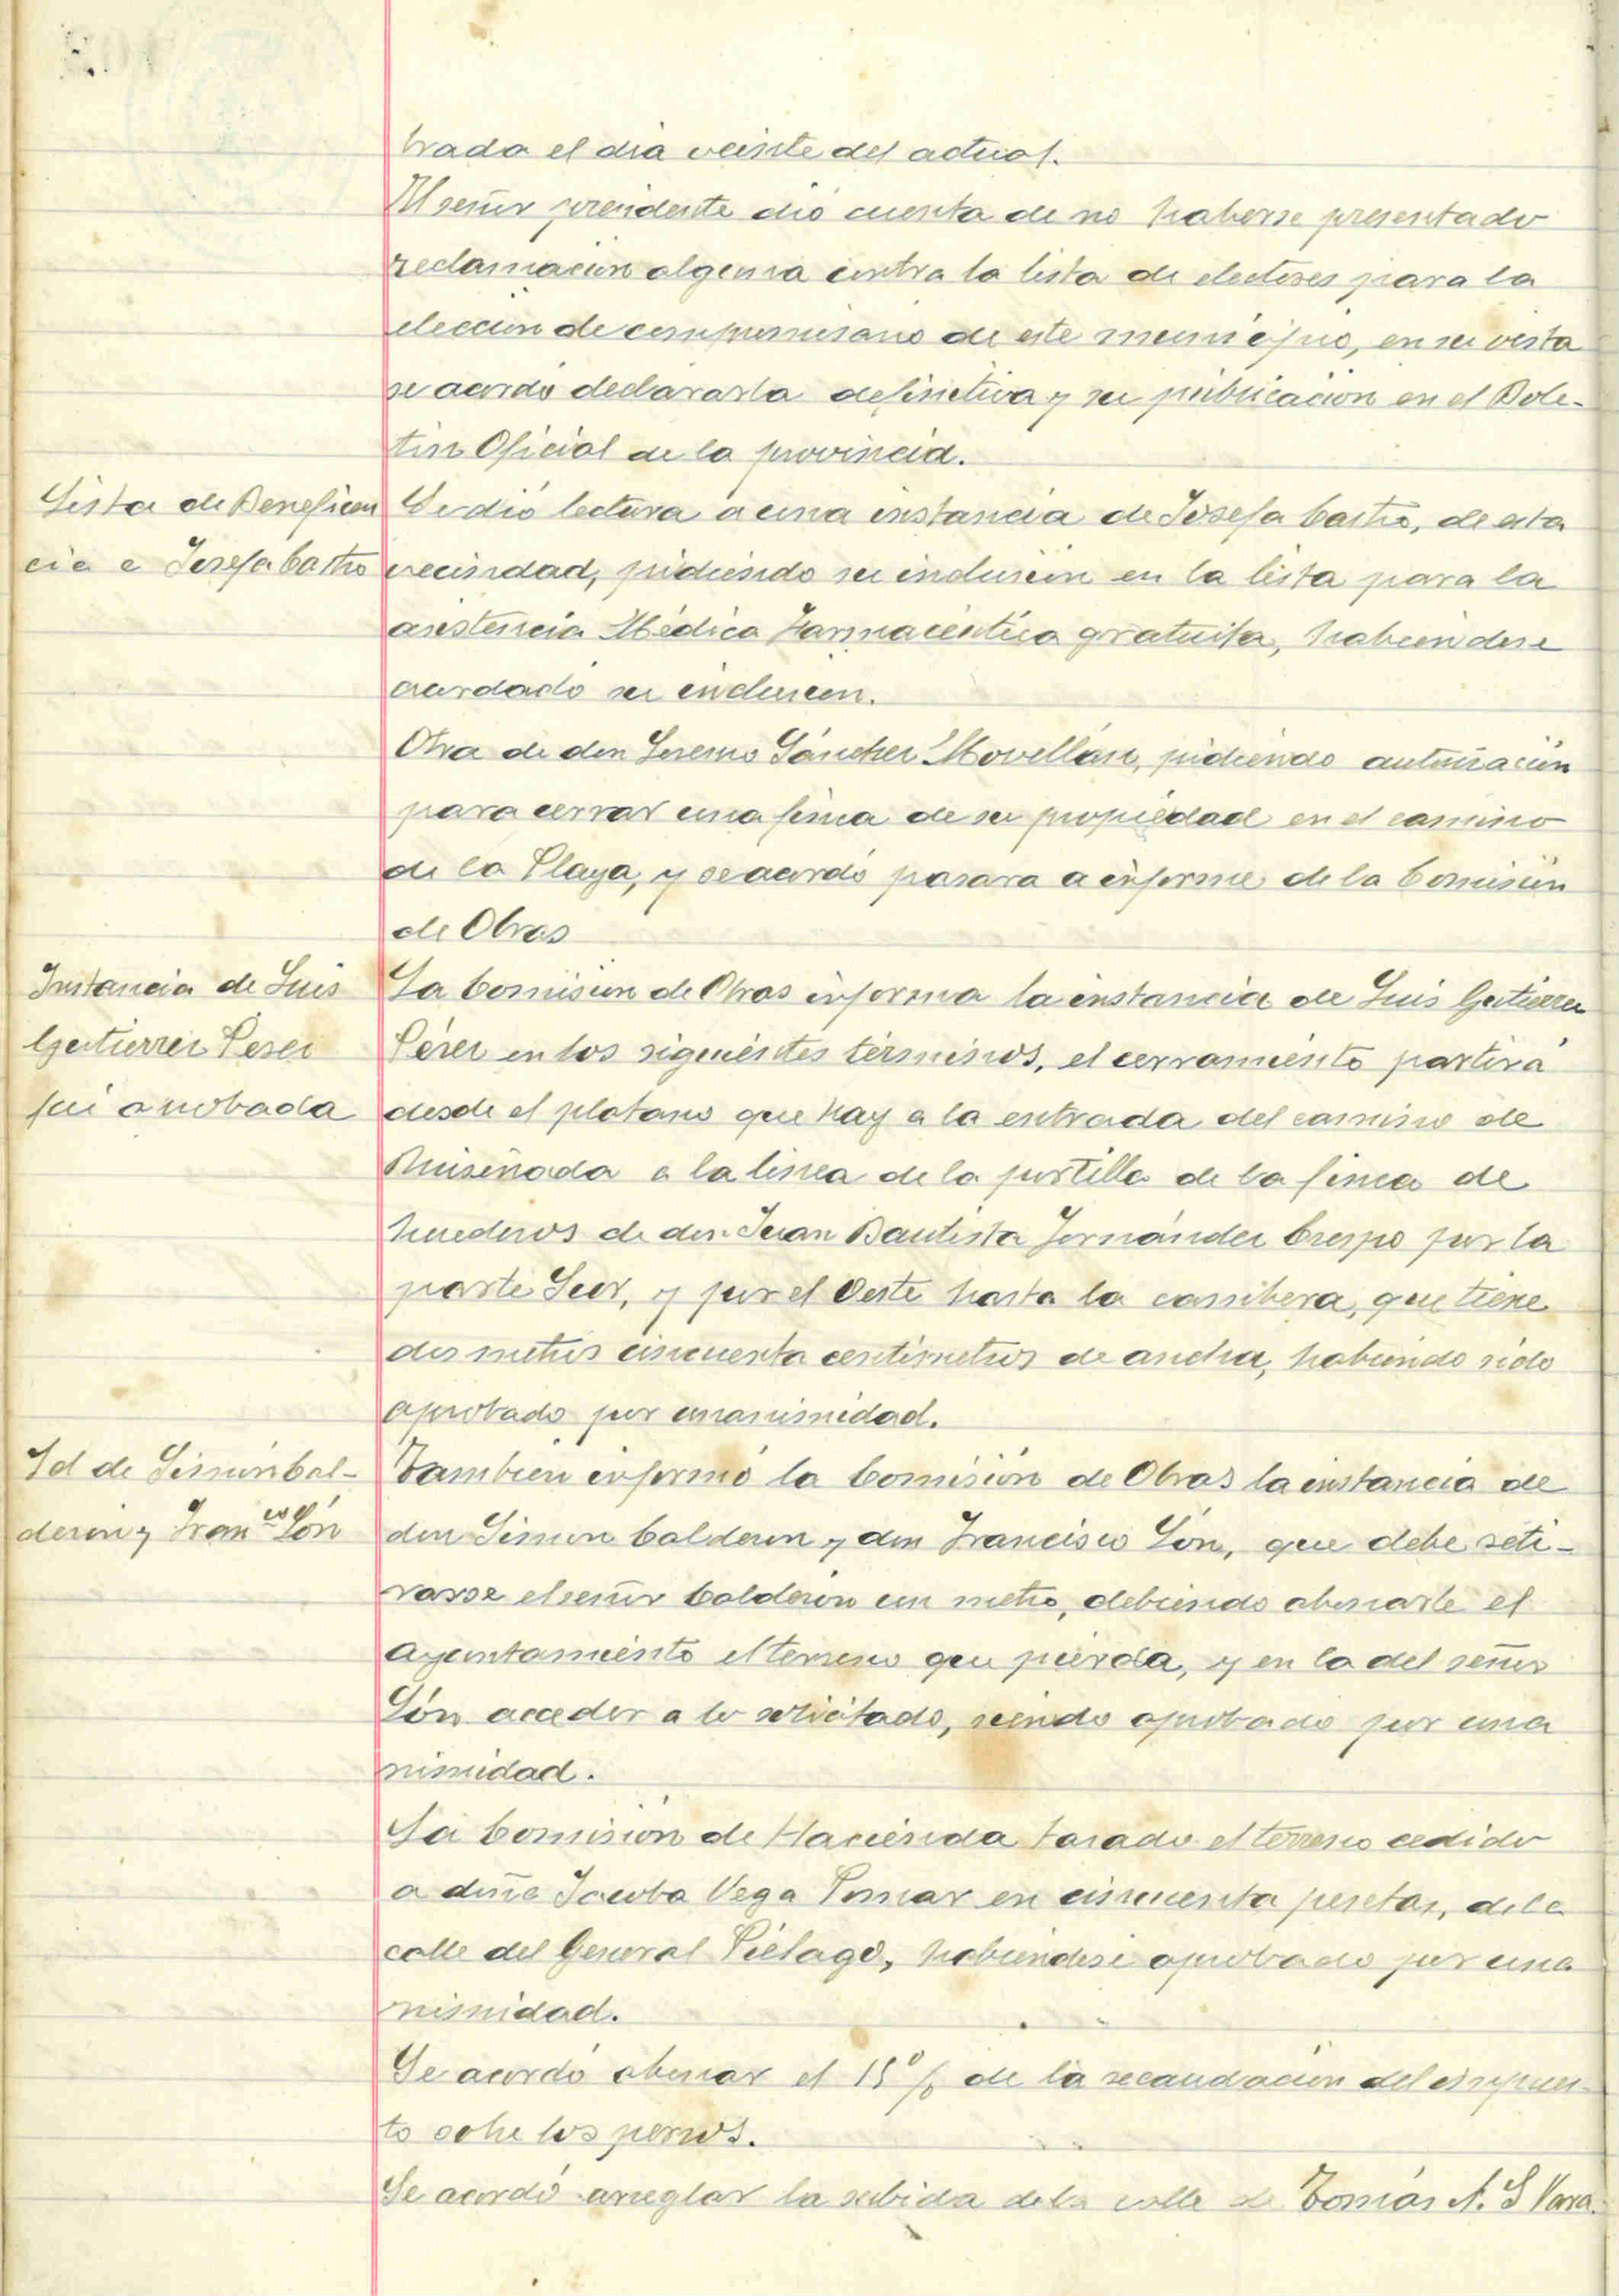 brada el dia veinte del actual.
El señor presidente dió cuenta de no haberse presentado
reclamacion alguna contra la lista de electores para la
eleccion de compromisario de este municipio, en su vista
se acordo declararla definitiva y su publicacion en el Bole-
tin Oficial de la provincia.
Lista de Beneficen
cia a Josefa Castro
Se dió lectura a una instancia de Josefa Castro, de esta
vecindad, pidiendo su inclusion en la lista para la
asistencia Médica Farmaceutica gratuita, habiendose
acordado su inclusion.
Otra de don Sánchez Movellán, pidiendo autorización
para cerrar una finca de su propiedad en el camino
de la Playa, y se acordó pasara a informe de la Comisión
de Obras
Instancia de Luis
Gutierrez Perez
fue aprobada
La Comision de Obras informa la instancia de Luis Gutierrez
Pérez en los siguientes términos, el cerramiento partirá
desde el platano que hay a la entrada del camino de
Ruiseñada a la linea de la portilla de la finca de
herederos de don Juan Bautista Fernández Crespo por la
parte Sur, y por el Oeste hasta la cambera, que tiene
dos metros cincuenta centimetros de ancha, habiendo sido
aprobado por unanimidad.
Id de Simon Cal-
deron y Franco Són
Tambien informó la Comisión de Obras la instancia de
don Simon Calderon y don Francisco Són, que debe reti-
rarse el señor Calderon un metro, debiendo abonarle el
Ayuntamiento el terreno que pierda, y en la del señor
Són acceder a lo solicitado, siendo aprobado por una
nimidad.
La Comision de Hacienda tasado el terreno cedido
a doña Jacoba Vega Pomar en cincuenta pesetas, de la
calle del General Piélago, habiendose aprobado por una
nimidad.
Se acordó abonar el 15 % de la recaudacion del impues-
to sobre los perros.
Se acordó arreglar la subida de la calle de Tomás A. S Vara.